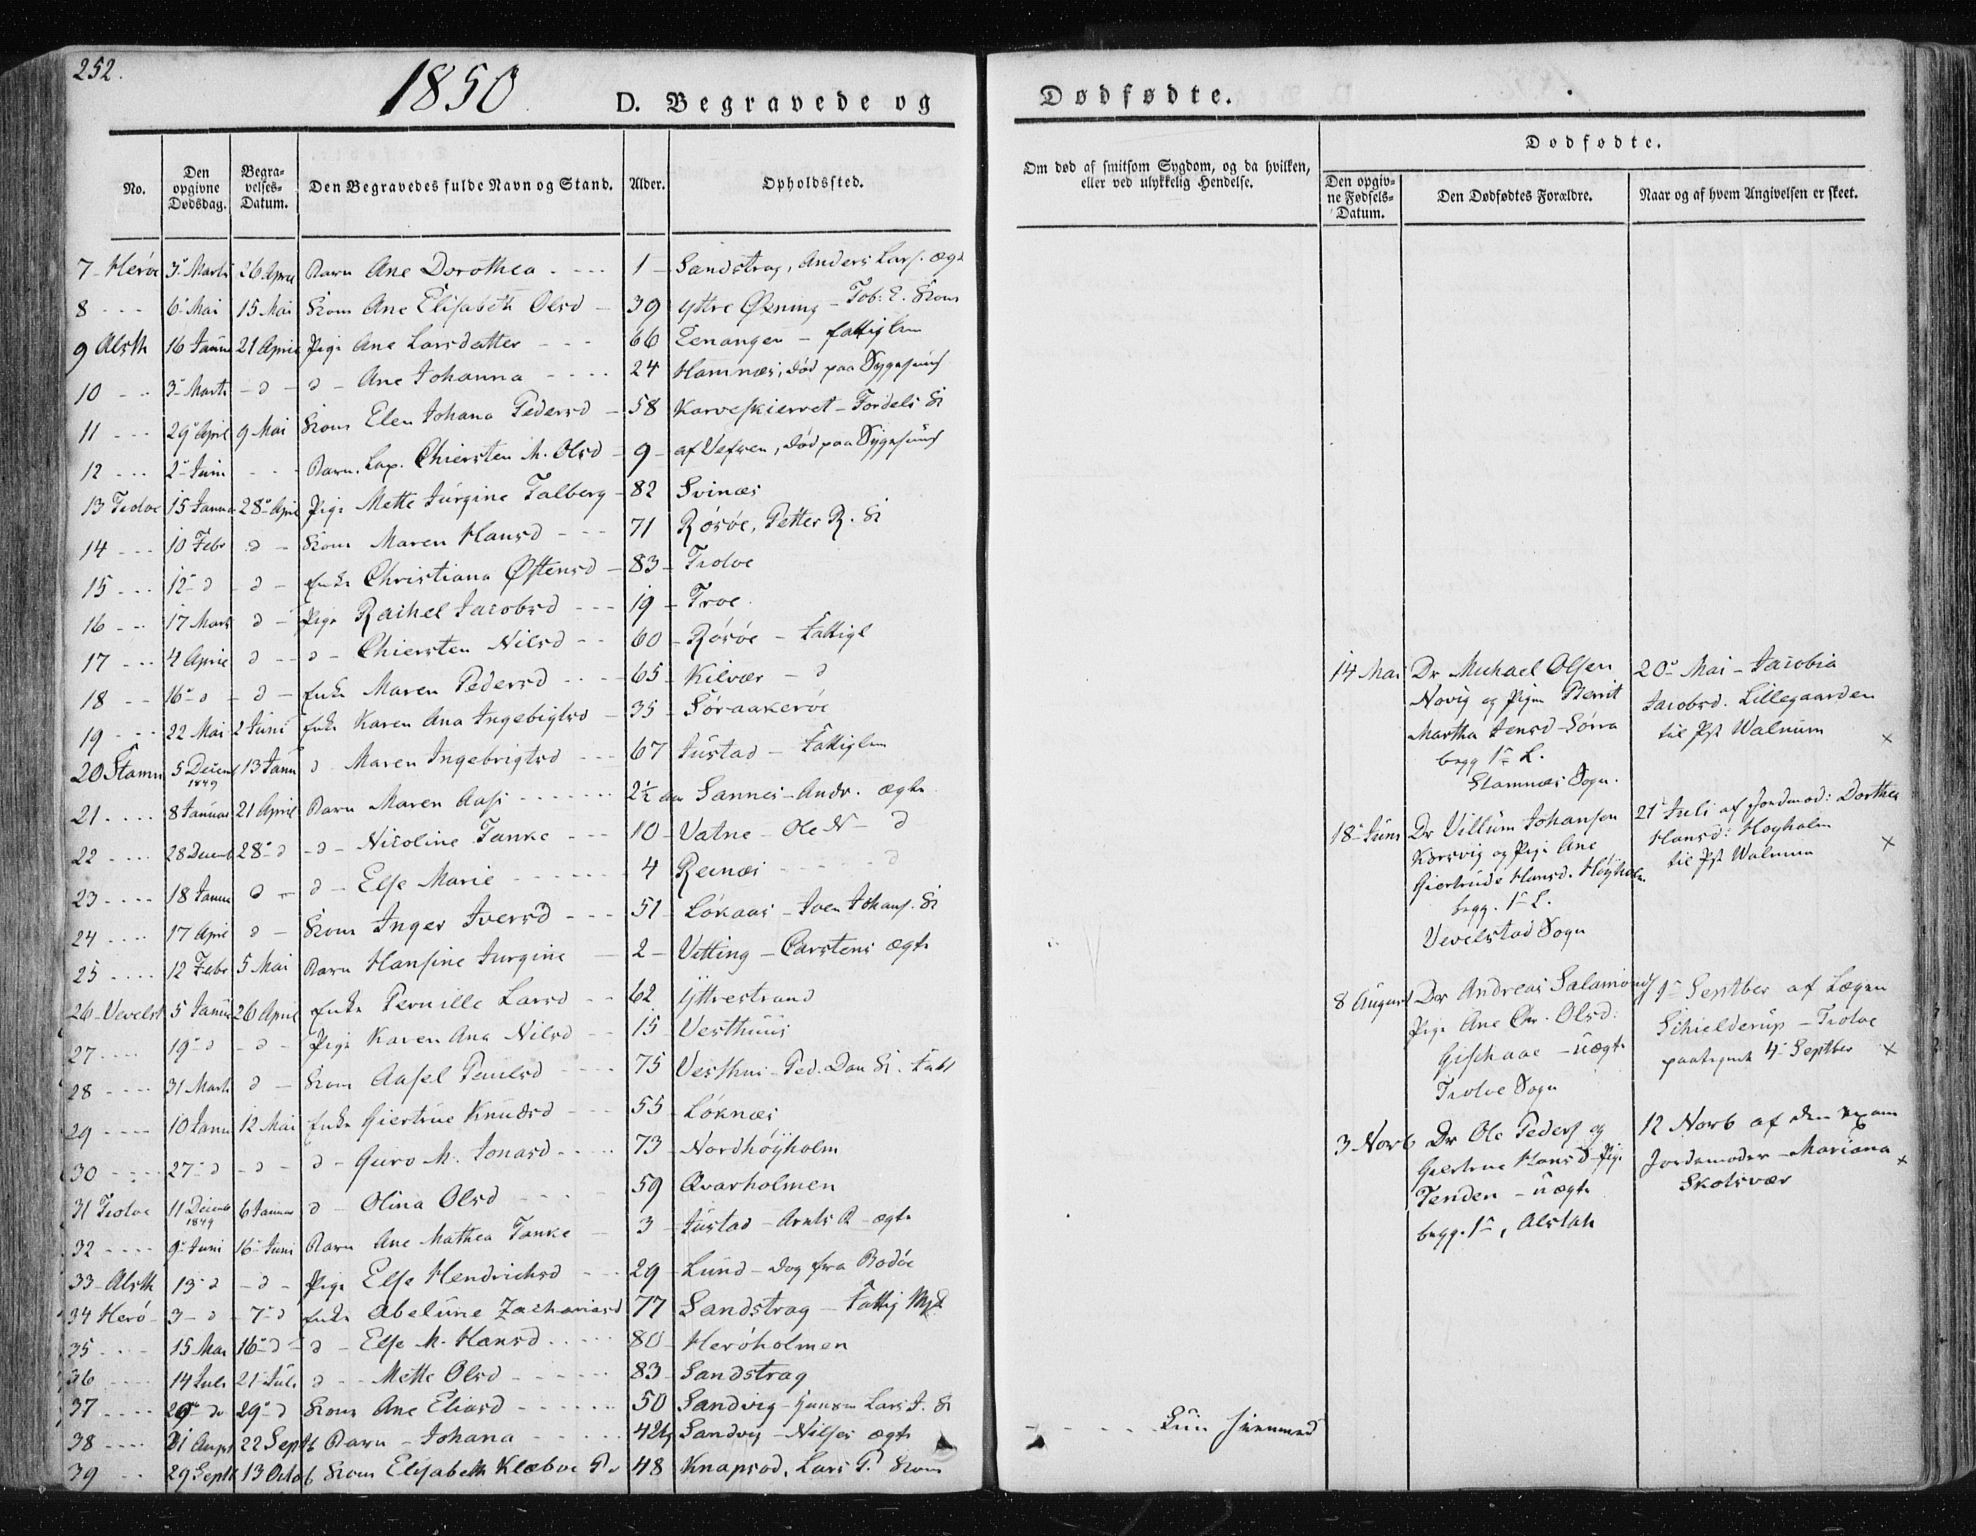 252.
1850
D. Begravede og
Dødfødte.
No.
Den opgivne Dødsdag.
Begravelses-Datum.
Den Begravedes fulde Navn og Stand.
Alder.
Opholdssted.
Om død af smitsom Sygdom, og da hvilken, eller ved ulykkelig Hendelse.
Dødfødte.
Den opgivne Fødsels-Datum.
Den Dødfødtes Forældre.
Naar og af hvem Angivelsen er skeet.
7 - Herøe 3- Marti 26 April Barn Ane Dorothea - - - 1 - Sandstrag, Anders Lars. ægt
8 - - - 6- Mai 15 Mai Kone Ane Elisabeth Olsd - 39 Yttre Øxning - Tob. E. Kone
9 Alsth 16 Janu 21 April Pige Ane Larsdatter - - - 66 Lenangen - fattiglem
10 - - - 3- Marti - d - d - Ane Johanna - - - - 24 Hamnæs, død paa Sygehuus
11 - - - 29- April 9 Mai Kone Elen Johana Pedersd - 58 Karveskierret - Fordels K
12 - - - 2- Juni - - - Barn. Lap. Chiersten M. Olsd - 9 - af Vefsen, død paa Sygehuus
13 Tiøtøe 15 Janua 28- April Pige Mette Jürgine Falberg - 82 Svinæs
14 - - - 10 Febr d - Kone Maren Hansd - - - 71 Røsøe, Petter R. K
15 - - - 12- d - d - Enke Christiana Østensd - 83 - Tiøtøe
16 - - - 17 Mars d - Pige Rachel Jacobsd - - - 19 - Troe
17 - - - 4 April d - - d - Chiersten Nilsd - - 60 - Røsøe - Fattigl
18 - - 16- d - d - Enke Maren Pedersd - - - 65 - Kilvær - d
19 - - - 22 Mai 2 Juni Enke Karen Ana Ingebrigtsd - 35 - Søraakerøe
20 Stamn 5 Decemb 1849 13 Janu d Maren Ingebrigtsd - - - 67 Justad - Fattiglem
21 - - - - 8 Januar 21 April Barn Maren Aas - - - - - 2½ aar Sannes - Andr. ægte
22 - - - - 28 Decemb 28- d - d - Nicoline Tanke - - - 10 - Vatne - Ole N - d
23 - - - - 18 Janu d - d - Else Marie - - - - - - 4 Reinæs - - - d
24 - - - - 17 April d - Kone Inger Iversd - - - 51 - Løkaas - Iven Johans. K
25 - - - - 12 Febr 5 Mai Barn Hansine Jurgine - 2 - Vitting - Carstens ægte
26 - Vevelst 5 Janu 26 April Enke Pernille Larsd - - 62 Yttrestrand
27 - - - - 19- d - d - Pige Karen Ana Nilsd - - 15 - Vesthuus
28 - - - - 31 Mart d - Kone Aasel Poulsd - - - 75 Vesthus - Ped. Dan K.
29 - - - - 10 Janu 12 Mai Enke Giertrue Knudsd - - - 55 - Løknæs
30 - - - - 27- d - d - d - Guro M. Jonasd - - - - 73 - Nordhøyholm
31 Tiøtøe 11 Decemb 1849 6 Januar d - Olina Olsd - - - 59 Qvarholmen
32 - - - - 9- Juni 16- Juni Barn Ane Mathea Tanke - 3 - Justad - Arnts R - ægte
33 - Alsth 13- d - d - Pige Else Hendrichsd - - 29 - Lund - Dog fra Bodøe
34 Herø - 3- d - 7- d Enke Abelune Zachariasd 77 Sandstrag - Fattig
35 - - - - 15 Mai 16- d - d - Else M. Hansd - - - - - 80 - Herøholmen
36 - - - - 14 Juli 21 Juli d - - Mette Olsd - - - - - - 83 - Sandstrag
37 - - - - 26- d 29- d Kone Ane Eliasd - - - - - - 50 Sandvig - Lars J. K
38 - - - - 31 Aug 22 Septb Barn - Johana - - - - - - Sandvig - Nilses ægte
39 - - 29 Septb 13 Octob Kone Elisabeth Klæboe 48 Knapsød, Lars P. Kone
14 Mai Dr Michael Olsen
Novig og Pigen Berrit
Martha Jensd - Sørra
begg 1- L.
Stamnæs Sogn.
20- Mai - Jacobia
Jacobsd. Lillegaarden
til Pst Walnum ×
18- Juni Dr Villum Johansen
Korsvig og Pige Ane
Giertrude Hansd. Høyholm
begg. 1- L.
Vevelstad Sogn
21- Juli af Jordmod: Dorthea
Hansd: Høyholm
til Pst Walnum ×
8 August Dr Andreas Salamons
Pige Ane Chr. Olsd:
- uægte
Tiøtøe Sogn
1- Septber af Lægen
Schielderup - Tiøtøe
paategnet 4- Septber ×
3 Novb Dr Ole Peders og
Giertrue Hansd Pige
Tenden - uægte
begg. 1-, Alstah
12 Novb af den exam
Jordemoder - Mariana ×
Skotsvær